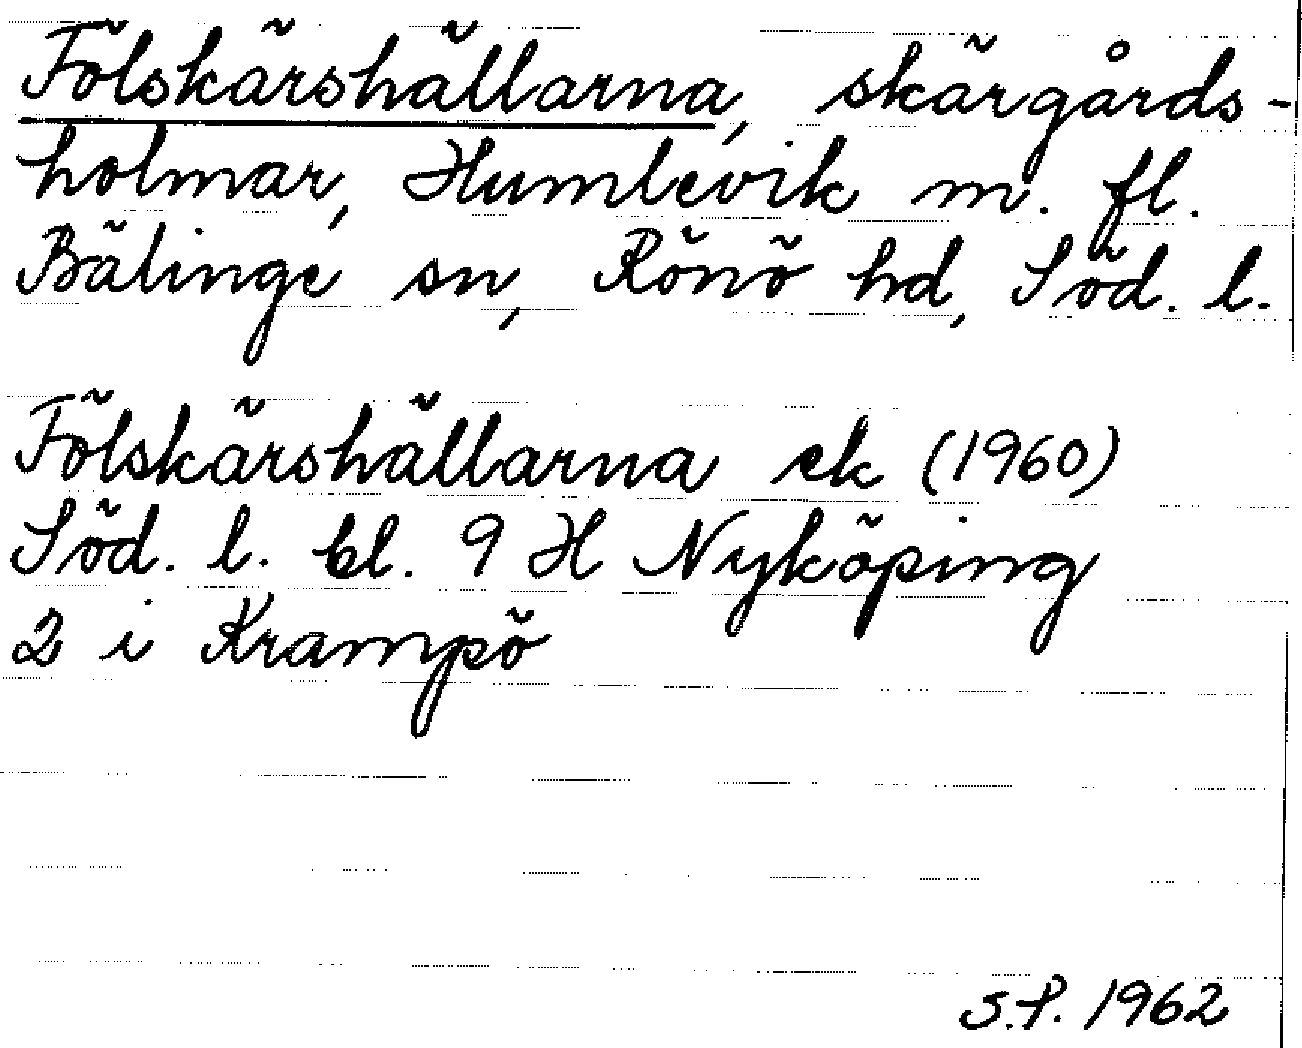 Fölskärshällarna, skärgårds-
holmar, Humlevik m. fl.
Bälinge sn, Rönö hd, Söd. l.
Fölskärshällarna ek (1960)
Söd. l. bl. 9 H Nyköping
2 i Krampö
S.P. 1962